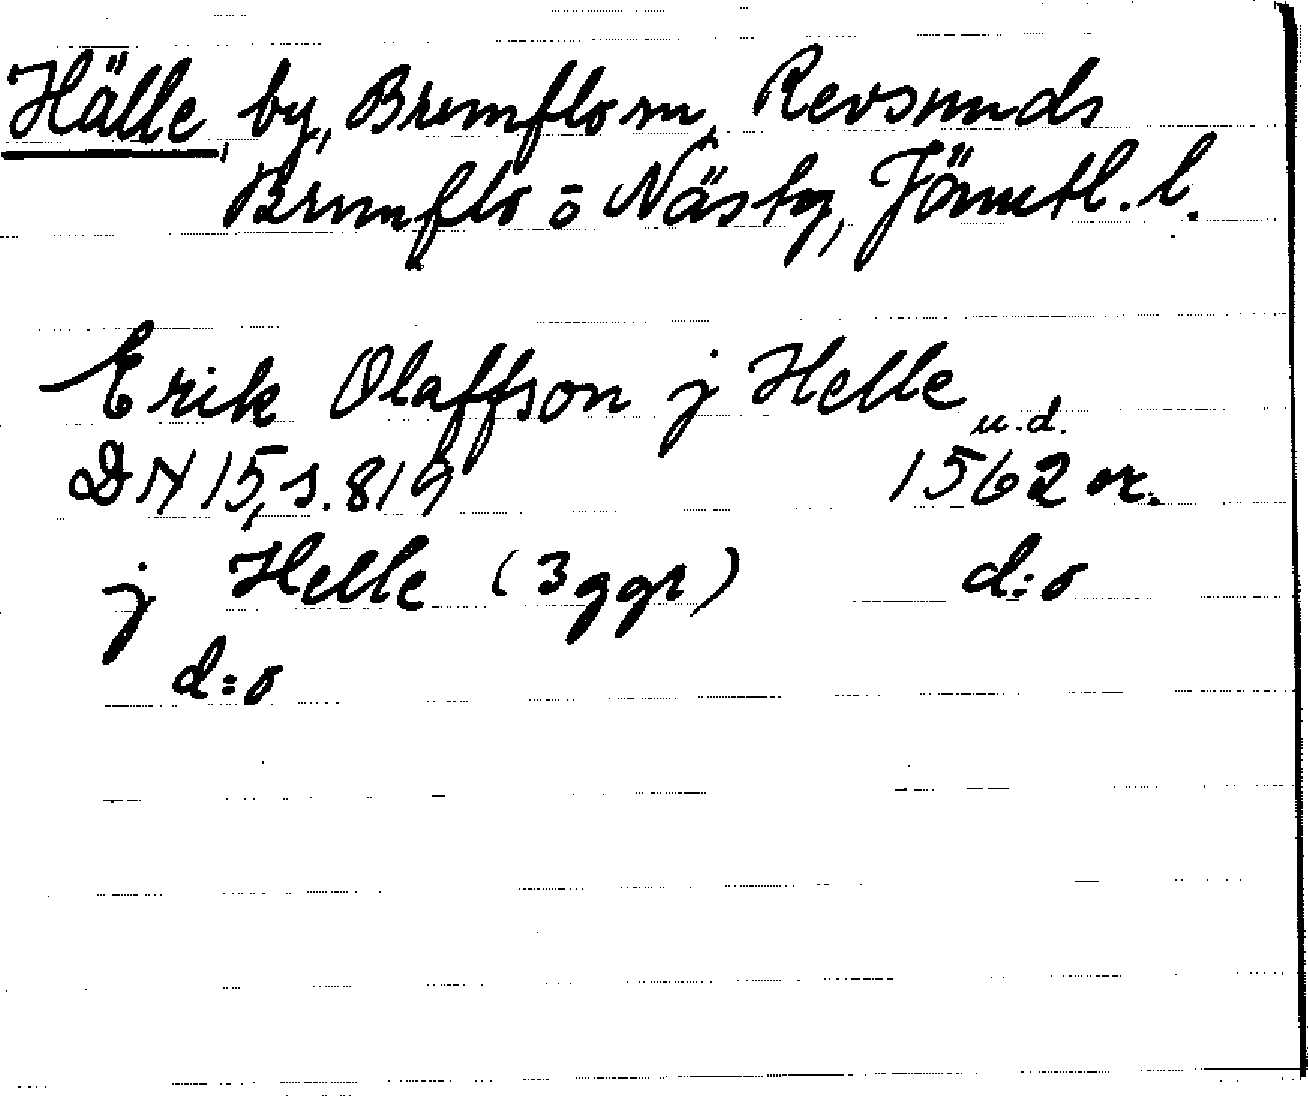 Hälle, by, Brunflo sn, Revsunds
Brunflo o Näs tg, Jämtl. l.
Erik Olaffson j Helle
u.d.
DN 15, s. 819 1562 or.
j Helle (3 ggr) d:o
d:o